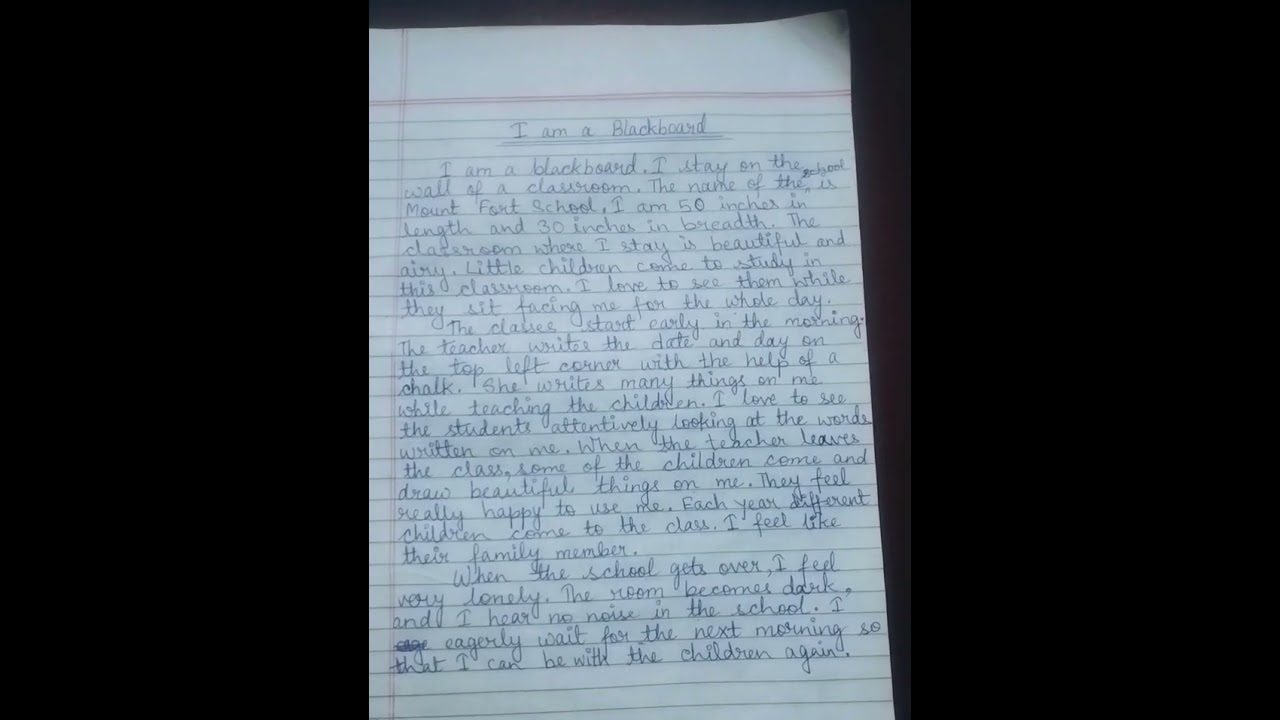 I am a Blackboard
I am a blackboard. I stay on the
wall of a classroom. The name of the school is
Mount Fort School. I am 50 inches in
length and 30 inches in breadth. The
classroom where I stay is beautiful and
airy. Little children come to study in
this classroom. I love to see them while
they sit facing me for the whole day.
The classes start early in the morning.
The teacher writes the date and day on
the top left corner with the help of a
chalk. She writes many things on me
while teaching the children. I love to see
the students attentively looking at the words
written on me. When the teacher leaves
the class, some of the children come and
draw beautiful things on me. They feel
really happy to use me. Each year different
children come to the class. I feel like
their family member.
When the school gets over, I feel
very lonely. The room becomes dark,
and I hear no noise in the school. I
eagerly wait for the next morning so
that I can be with the children again.